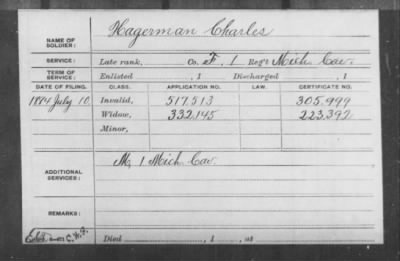 NAME OF SOLDIER: Hagerman Charles
SERVICE: Late rank, Co. F, 1 Reg't Mich Cav.
TERM OF SERVICE: Enlisted , 1 Discharged , 1
DATE OF FILING. CLASS. APPLICATION NO. LAW. CERTIFICATE NO.
1884 July 10. Invalid, 517,513 305,999
Widow, 332,145 223,392
Minor,
ADDITIONAL SERVICES: M, 1 Mich Cav.
REMARKS:
C.W.F. Died , 1 , at